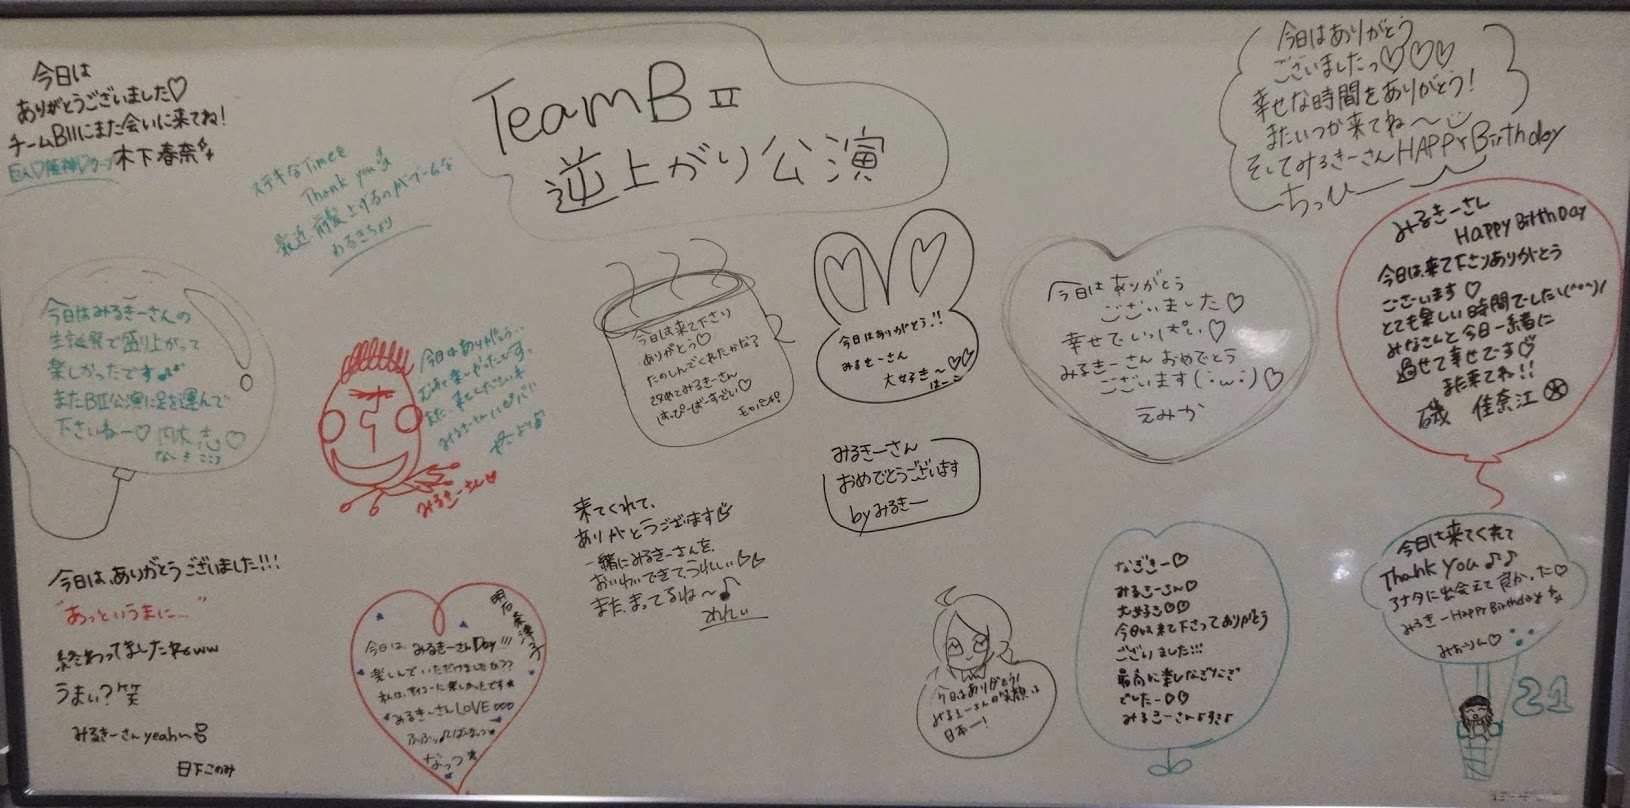 TeamBⅡ
逆上がり公演
今日は
ありがとうございました♡
チームBⅡにまた会いに来てね!
巨人♡阪神♡
木下春奈
ステキなTimeを
Thank you
最近前髪上げるのがブームな
わるきちより
今日はありがとう
ございましたっ♡♡♡
幸せな時間をありがとう!
またいつか来てね〜
そしてみるきーさんHAPPY Birthday
ちっひー
今日はみるきーさんの
生誕祭で盛り上がって
楽しかったです♪
またBⅡ公演に足を運んで
下さいねー♡ 内木 志♡
ないき ここ
今日はありがとう
みるきーさん♡
今日は来て下さり
ありがとう♡
たのしんでくれたかな?
改めてみるきーさん
はっぴーばーすでい♡
今日はありがとう!!
みるきーさん
大好き〜♡♡
はーこ
今日はありがとう
ございました♡
幸せでいっぱい♡
みるきーさん おめでとう
ございます(・ω・)♡
えみか
みるきーさん
Happy Birth Day
今日は来て下さりありがとう
ございます♡
とても楽しい時間でした\(^o^)/
みなさんと今日一緒に
過せて幸せです♡
また来てね!!
磯 佳奈江
みるきーさん
おめでとうございます
by みるきー
来てくれて、
ありがとうございます
一緒にみるきーさんを、
おいわいできてうれしい♡♡
また、まってるね〜♪
れいい
今日は、ありがとうございました!!!
"あっというまに…"
終わってましたねww
うまい?笑
みるきーさんyeah~
日下このみ
明石奈津子
今日は みるきーさんDay!!!
楽しんでいただけましたか??
みるきーさんLOVE♡♡♡
なっつ
今日はありがとう!
みるきーさんの笑顔は
日本一!
なぎさー♡
みるきーさん♡
大好き♡♡
今日は来て下さってありがとう
ございました!!!
最高に楽しなぎなぎ
でしたー♡♡
今日は来てくれて
Thank you♪♪
アナタに出会えて良かった♡
みるきーHappy Birthday
みおりん♡
21